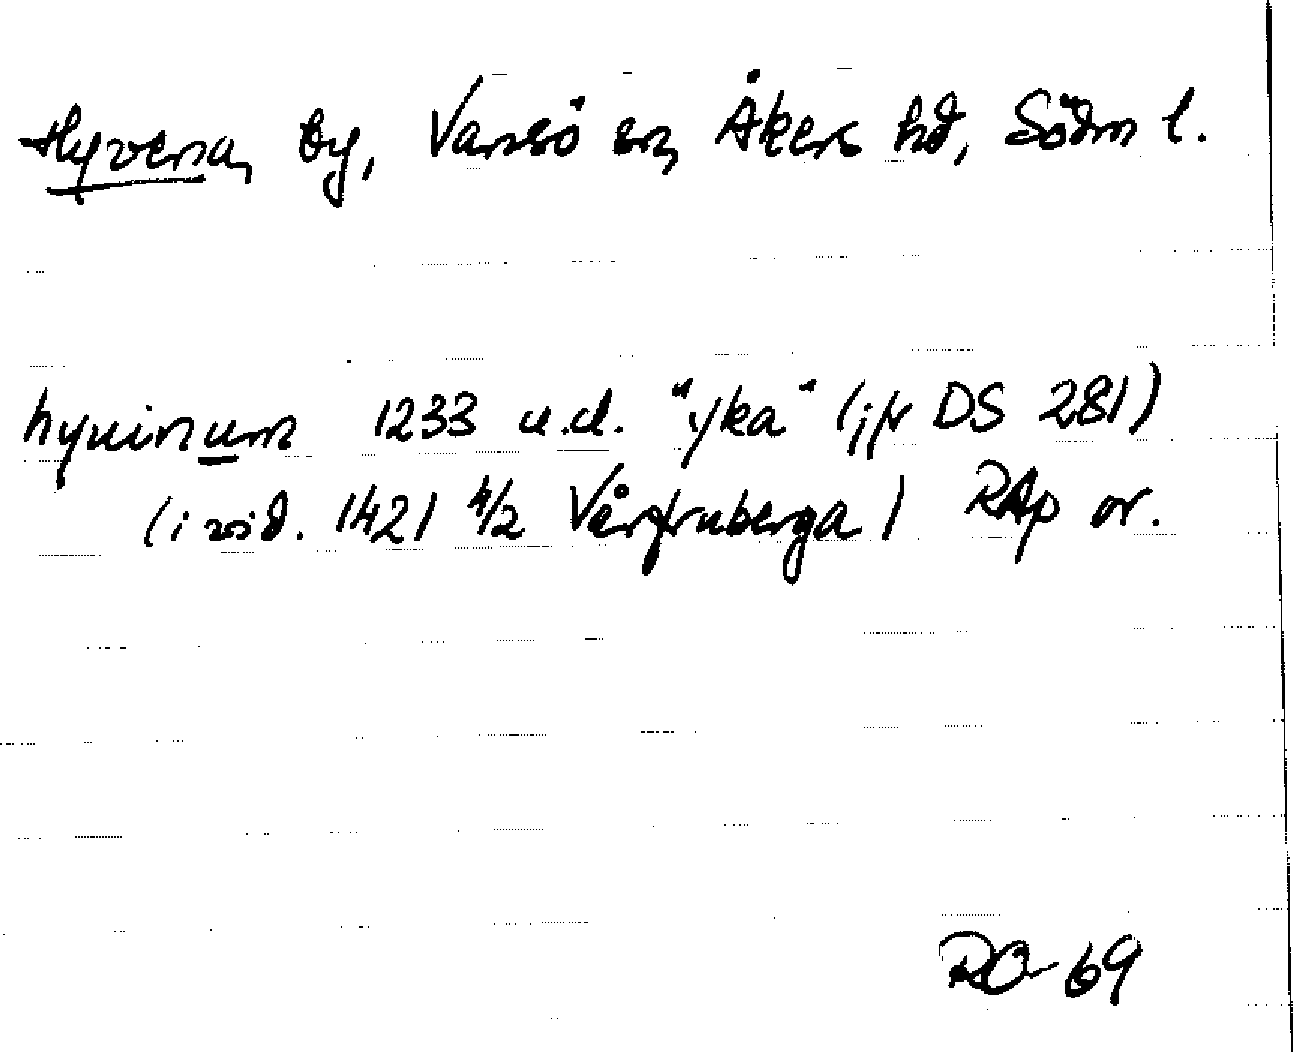 Hyvena, by, Vansö sn, Åkers hd, Södm l.
hyuinum 1233 u.d. "yka" (jfr DS 281)
(i vid. 1421 4/2 Vårfruberga) RAp or.
RO-69